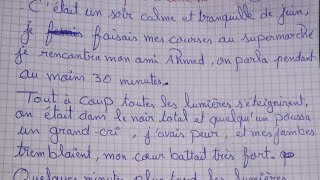 C'était un soir calme et tranquille de juin,
je faisais mes courses au supermarché
je rencontra mon ami Ahmed, on parla pendant
au moins 30 minutes.
Tout à coup toutes les lumières s'éteignirent,
on était dans le noir total et quelqu'un poussa
un grand cri, j'avais peur, et mes jambes
tremblaient, mon cœur battait très fort.
Quelques minutes plus tard les lumières